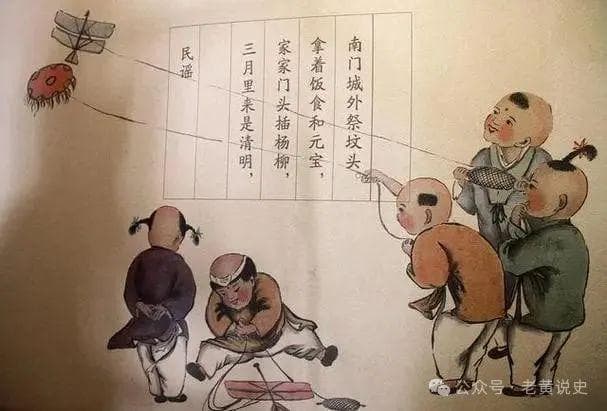 民谣
三月里来是清明，
家家门头插杨柳，
拿着饭食和元宝，
南门城外祭坟头
公众号 · 老黄说史